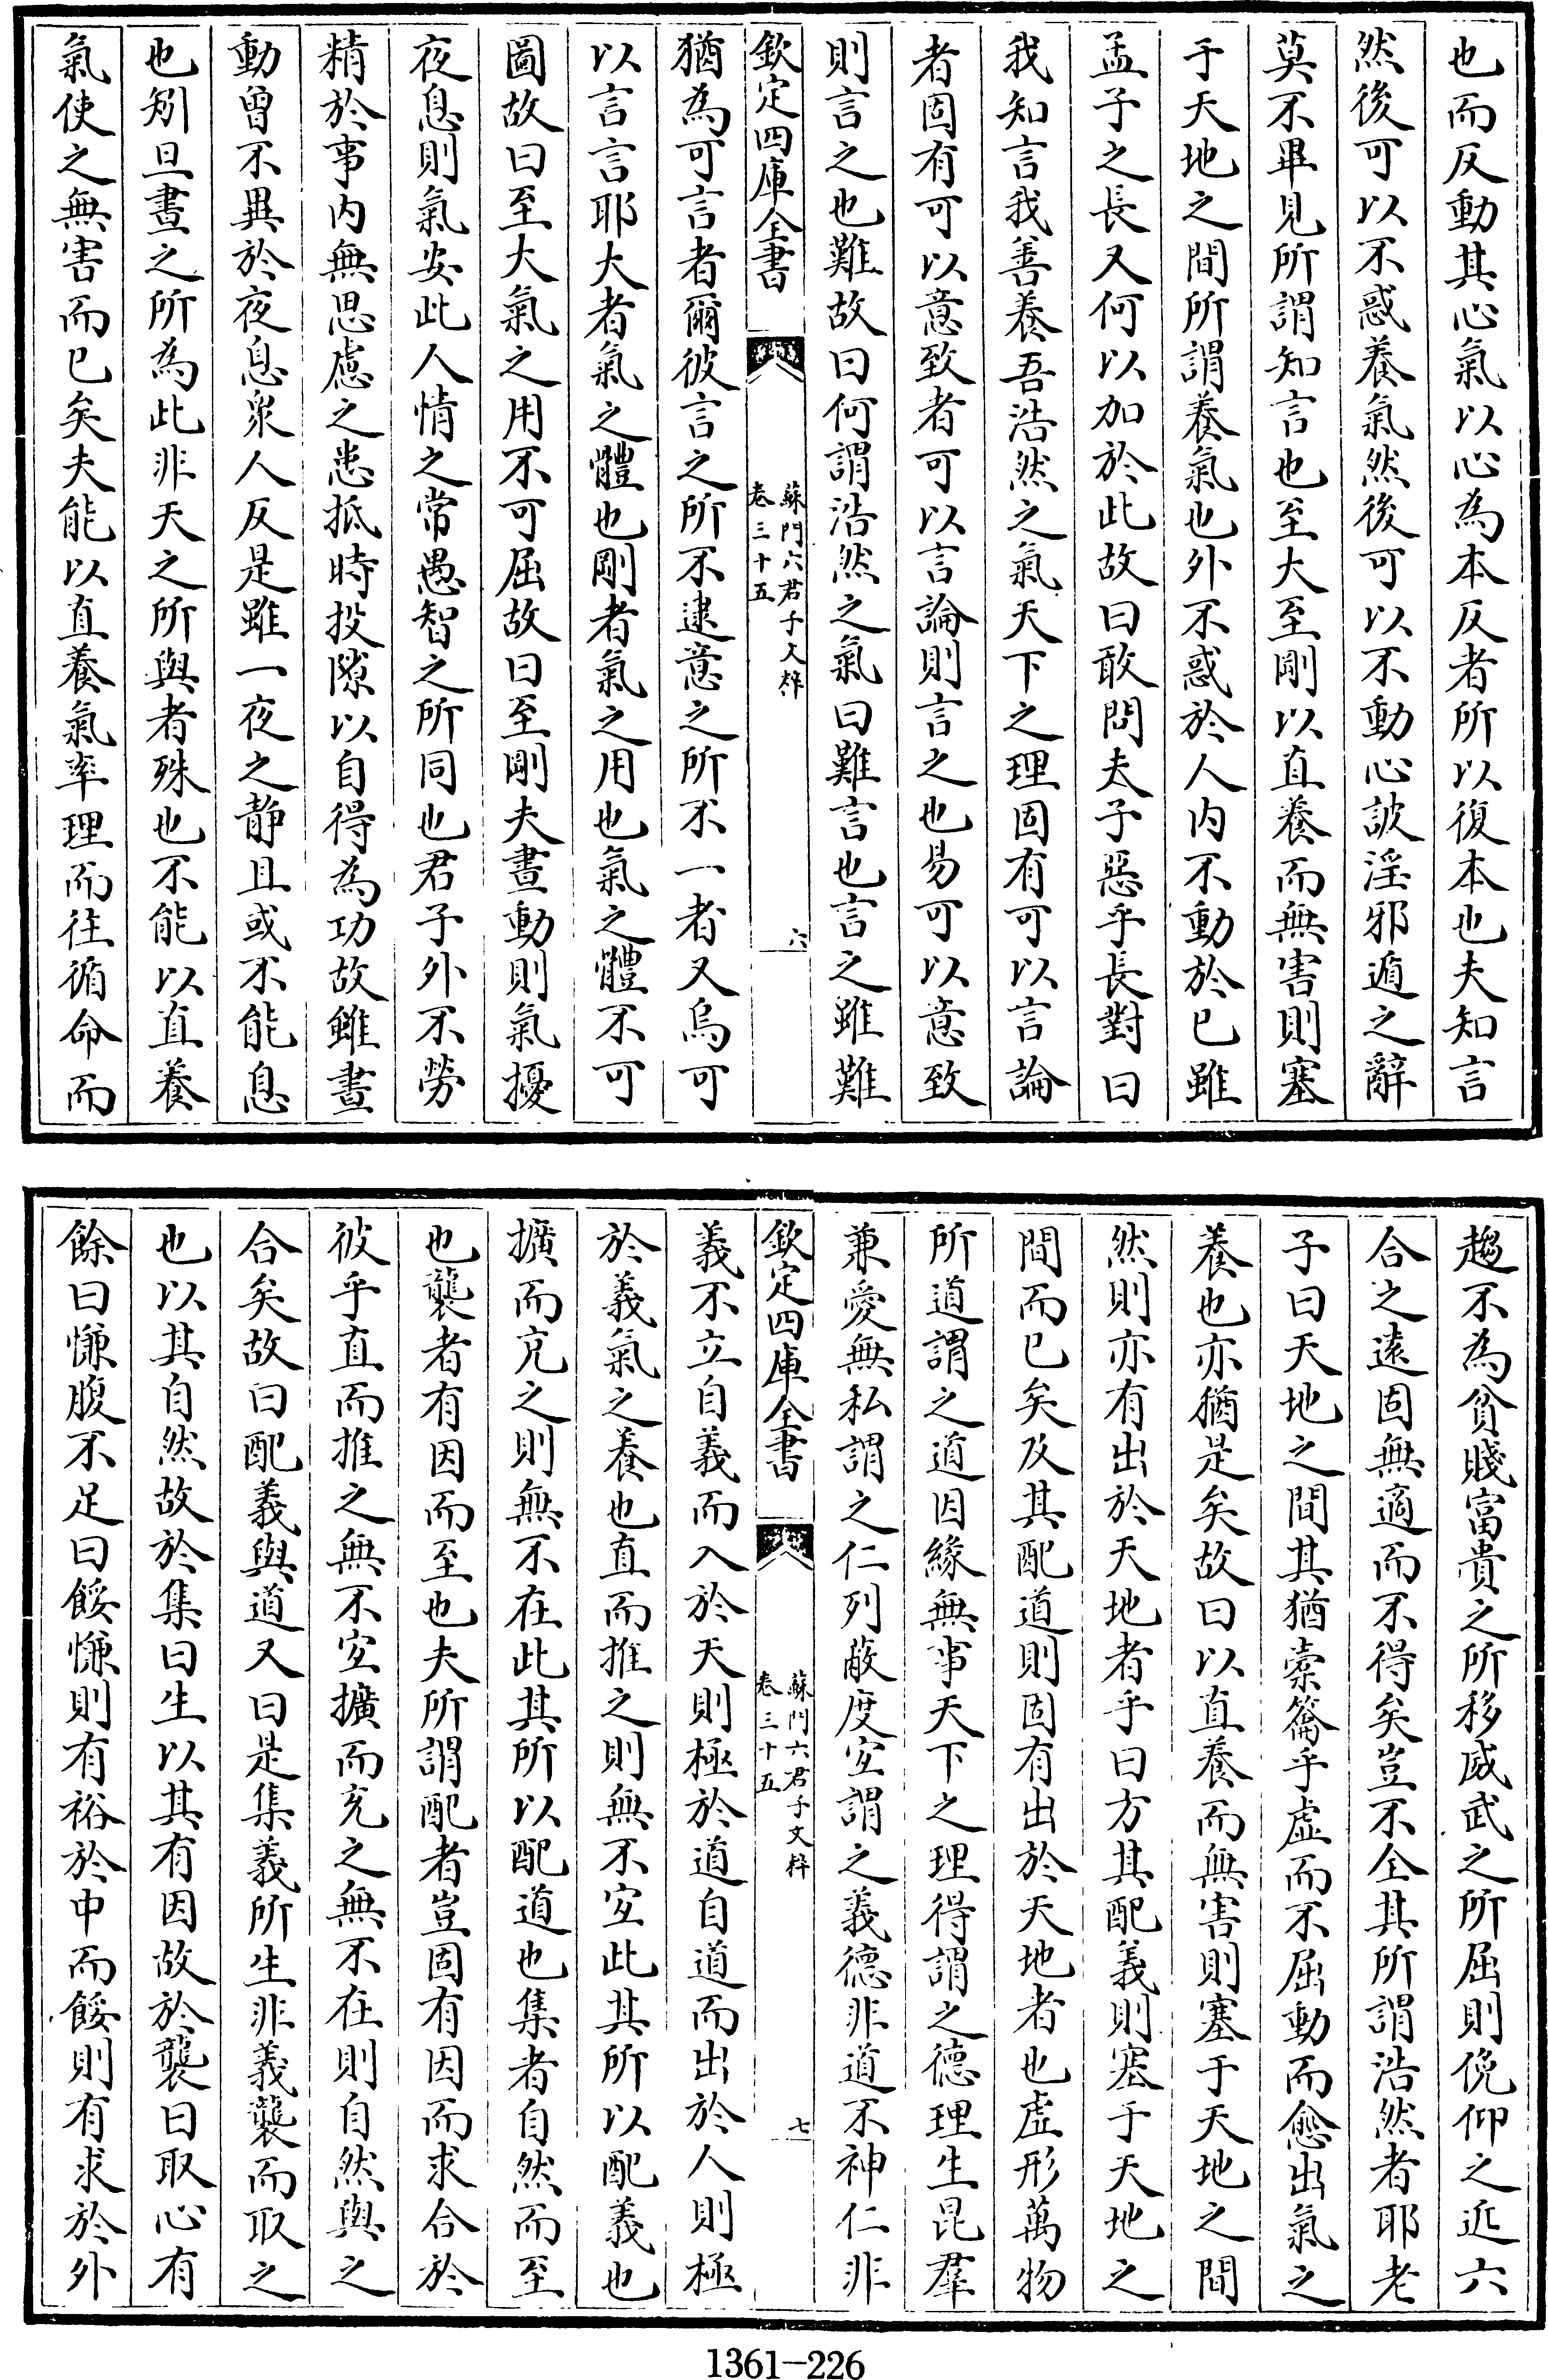 也而反動其心氣以心為本反者所以復本也夫知言
然後可以不惑養氣然後可以不動心詖淫邪遁之辭
莫不畢見所謂知言也至大至剛以直養而無害則塞
于天地之間所謂養氣也外不惑於人内不動於已雖
孟子之長又何以加於此故曰敢問夫子惡乎長對曰
我知言我善養吾浩然之氣天下之理固有可以言論
者固有可以意致者可以言論則言之也易可以意致
則言之也難故曰何謂浩然之氣曰難言也言之雖難
欽定四庫全書
蘇門六君子文粹
卷三十五
六
猶為可言者爾彼言之所不逮意之所不一者又烏可
以言言耶大者氣之體也剛者氣之用也氣之體不可
圖故曰至大氣之用不可屈故曰至剛夫晝動則氣擾
夜息則氣安此人情之常愚智之所同也君子外不勞
精於事内無思慮之患抵時投隙以自得為功故雖晝
動曾不異於夜息衆人反是雖一夜之静且或不能息
也矧旦晝之所為此非天之所與者殊也不能以直養
氣使之無害而已矣夫能以直養氣率理而往循命而
趨不為貧賤富貴之所移威武之所屈則俛仰之近六
合之遠固無適而不得矣豈不全其所謂浩然者耶老
子曰天地之間其猶橐籥乎虚而不屈動而愈出氣之
養也亦猶是矣故曰以直養而無害則塞于天地之間
然則亦有出於天地者乎曰方其配義則塞于天地之
間而已矣及其配道則固有出於天地者也虚形萬物
所道謂之道因緣無事天下之理得謂之德理生昆羣
兼愛無私謂之仁列蔽度宐謂之義德非道不神仁非
欽定四庫全書
蘇門六君子文粹
卷三十五
七
義不立自義而入於天則極於道自道而出於人則極
於義氣之養也直而推之則無不宐此其所以配義也
擴而充之則無不在此其所以配道也集者自然而至
也襲者有因而至也夫所謂配者豈固有因而求合於
彼乎直而推之無不宐擴而充之無不在則自然與之
合矣故曰配義與道又曰是集義所生非義襲而取之
也以其自然故於集曰生以其有因故於襲曰取心有
餘曰慊腹不足曰餒慊則有裕於中而餒則有求於外
1361-226